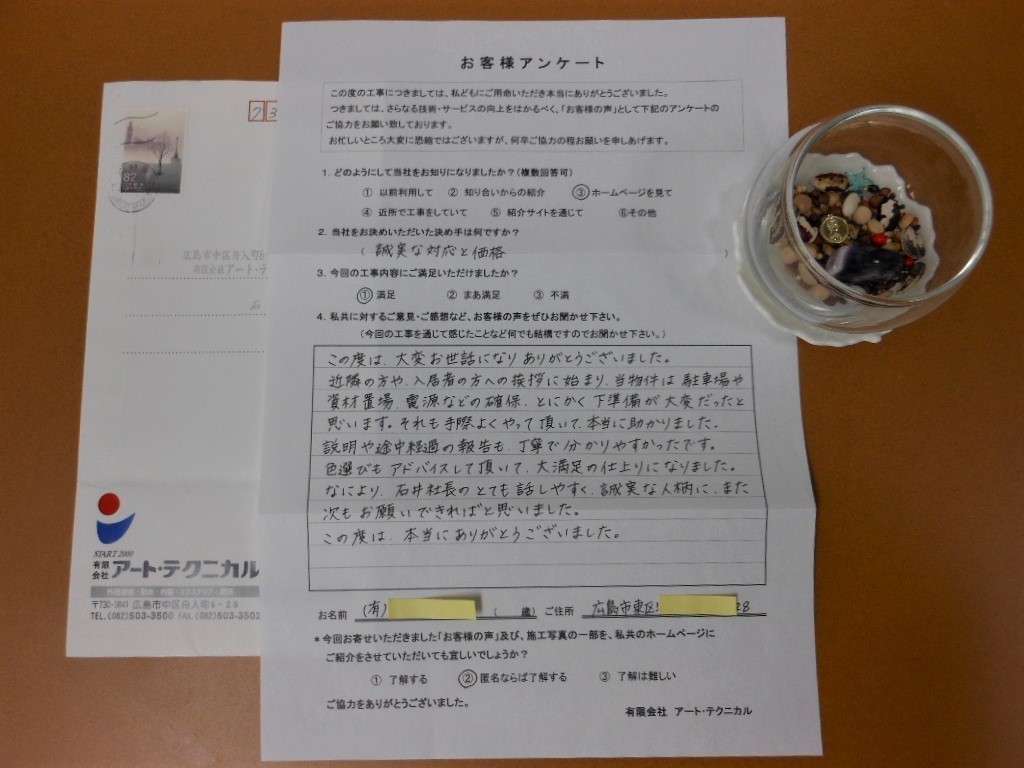 お客様アンケート
この度の工事につきましては、私どもにご用命いただき本当にありがとうございました。
つきましては、さらなる技術・サービスの向上をはかるべく、「お客様の声」として下記のアンケートの
ご協力をお願い致しております。
お忙しいところ大変に恐縮ではございますが、何卒ご協力の程お願いを申しあげます。
1. どのようにして当社をお知りになりましたか?(複数回答可)
① 以前利用して ② 知り合いからの紹介 ③ホームページを見て
④ 近所で工事をしていて ⑤ 紹介サイトを通じて ⑥その他
2. 当社をお決めいただいた決め手は何ですか?
( 誠実な対応と価格 )
3. 今回の工事内容にご満足いただけましたか?
① 満足 ② まあ満足 ③ 不満
4. 私共に対するご意見・ご感想など、お客様の声をぜひお聞かせ下さい。
(今回の工事を通じて感じたことなど何でも結構ですのでお聞かせ下さい。)
この度は、大変お世話になりありがとうございました。
近隣の方や、入居者の方への挨拶に始まり、当物件は駐車場や
資材置場、電源などの確保、とにかく下準備が大変だったと
思います。それも手際よくやって頂いて、本当に助かりました。
説明や途中経過の報告も、丁寧で分かりやすかったです。
色選びもアドバイスして頂いて、大満足の仕上りになりました。
なにより、石井社長のとても話しやすく、誠実な人柄に、また
次もお願いできればと思いました。
この度は、本当にありがとうございました。
お名前 (有) ( 歳) ご住所 広島市東区 28
*今回お寄せいただきました「お客様の声」及び、施工写真の一部を、私共のホームページに
ご紹介をさせていただいても宜しいでしょうか?
① 了解する ②匿名ならば了解する ③ 了解は難しい
ご協力をありがとうございました。
有限会社 アート・テクニカル
82
7 3
広島市中区舟入町6
有限会社アート・テ
石
START 2000
有限会社 アート・テクニカル
〒730-0841 広島市中区舟入町6-26
TEL.(082)503-3500 FAX.(082)503-3502